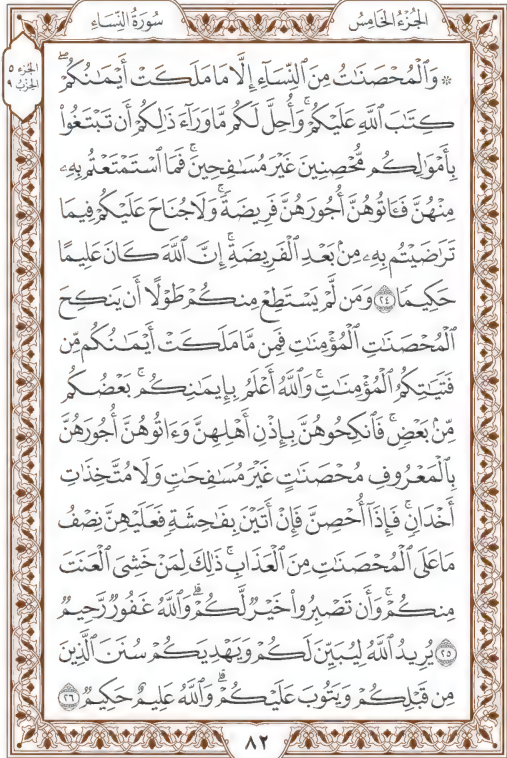 الجزء الخامس
سورة النساء
الجزء ٥
الحزب ٩
۞ وَٱلْمُحْصَنَٰتُ مِنَ ٱلنِّسَآءِ إِلَّا مَا مَلَكَتْ أَيْمَٰنُكُمْۖ
كِتَٰبَ ٱللَّهِ عَلَيْكُمْۚ وَأُحِلَّ لَكُم مَّا وَرَآءَ ذَٰلِكُمْ أَن تَبْتَغُوا۟
بِأَمْوَٰلِكُم مُّحْصِنِينَ غَيْرَ مُسَٰفِحِينَۚ فَمَا ٱسْتَمْتَعْتُم بِهِۦ
مِنْهُنَّ فَـَٔاتُوهُنَّ أُجُورَهُنَّ فَرِيضَةًۚ وَلَا جُنَاحَ عَلَيْكُمْ فِيمَا
تَرَٰضَيْتُم بِهِۦ مِنۢ بَعْدِ ٱلْفَرِيضَةِۚ إِنَّ ٱللَّهَ كَانَ عَلِيمًا
حَكِيمًا ٢٤ وَمَن لَّمْ يَسْتَطِعْ مِنكُمْ طَوْلًا أَن يَنكِحَ
ٱلْمُحْصَنَٰتِ ٱلْمُؤْمِنَٰتِ فَمِن مَّا مَلَكَتْ أَيْمَٰنُكُم مِّن
فَتَيَٰتِكُمُ ٱلْمُؤْمِنَٰتِۚ وَٱللَّهُ أَعْلَمُ بِإِيمَٰنِكُمۚ بَعْضُكُم
مِّنۢ بَعْضٍۚ فَٱنكِحُوهُنَّ بِإِذْنِ أَهْلِهِنَّ وَءَاتُوهُنَّ أُجُورَهُنَّ
بِٱلْمَعْرُوفِ مُحْصَنَٰتٍ غَيْرَ مُسَٰفِحَٰتٍ وَلَا مُتَّخِذَٰتِ
أَخْدَانٍۚ فَإِذَآ أُحْصِنَّ فَإِنْ أَتَيْنَ بِفَٰحِشَةٍ فَعَلَيْهِنَّ نِصْفُ
مَا عَلَى ٱلْمُحْصَنَٰتِ مِنَ ٱلْعَذَابِۚ ذَٰلِكَ لِمَنْ خَشِىَ ٱلْعَنَتَ
مِنكُمْۚ وَأَن تَصْبِرُوا۟ خَيْرٌ لَّكُمْۗ وَٱللَّهُ غَفُورٌ رَّحِيمٌ
٢٥ يُرِيدُ ٱللَّهُ لِيُبَيِّنَ لَكُمْ وَيَهْدِيَكُمْ سُنَنَ ٱلَّذِينَ
مِن قَبْلِكُمْ وَيَتُوبَ عَلَيْكُمْۗ وَٱللَّهُ عَلِيمٌ حَكِيمٌ ٢٦
٨٢